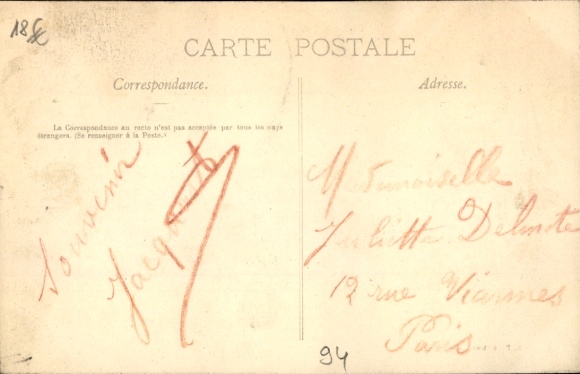 CARTE POSTALE
Correspondance.
Adresse.
La Correspondance au recto n'est pas acceptée par tous les pays
étrangers. (Se renseigner à la Poste.)
Souvenir
Mademoiselle
Juliette
12 rue Viarmes
Paris
94